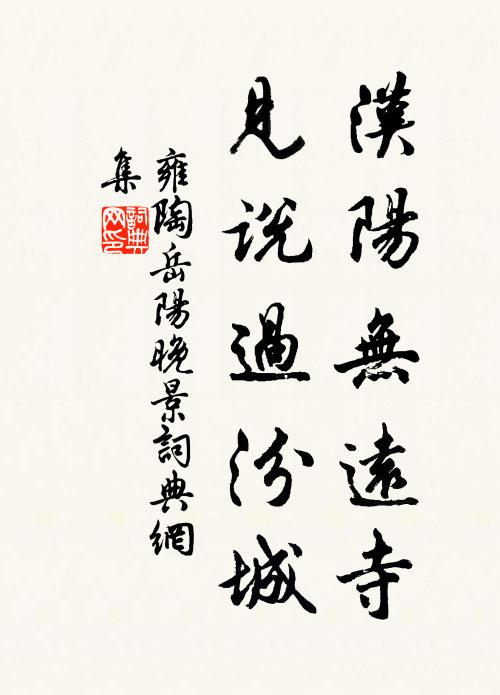 漢陽無遠寺
見說過汾城
雍陶岳陽晚景詞典網
集
詞典網印